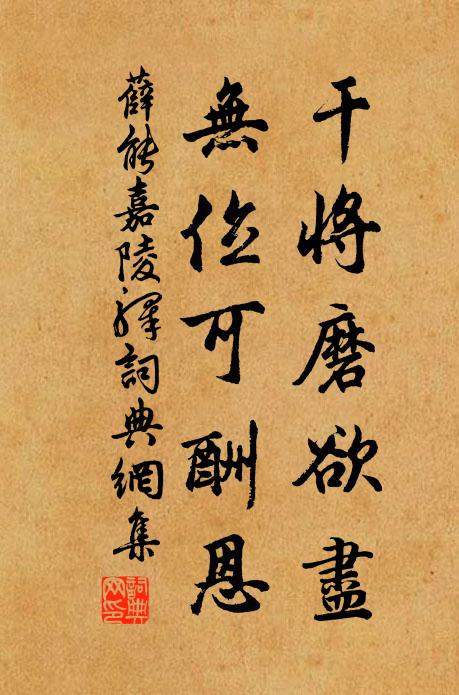 干將磨欲盡
無位可酬恩
薛能嘉陵驛詞典網集
詞典
网印